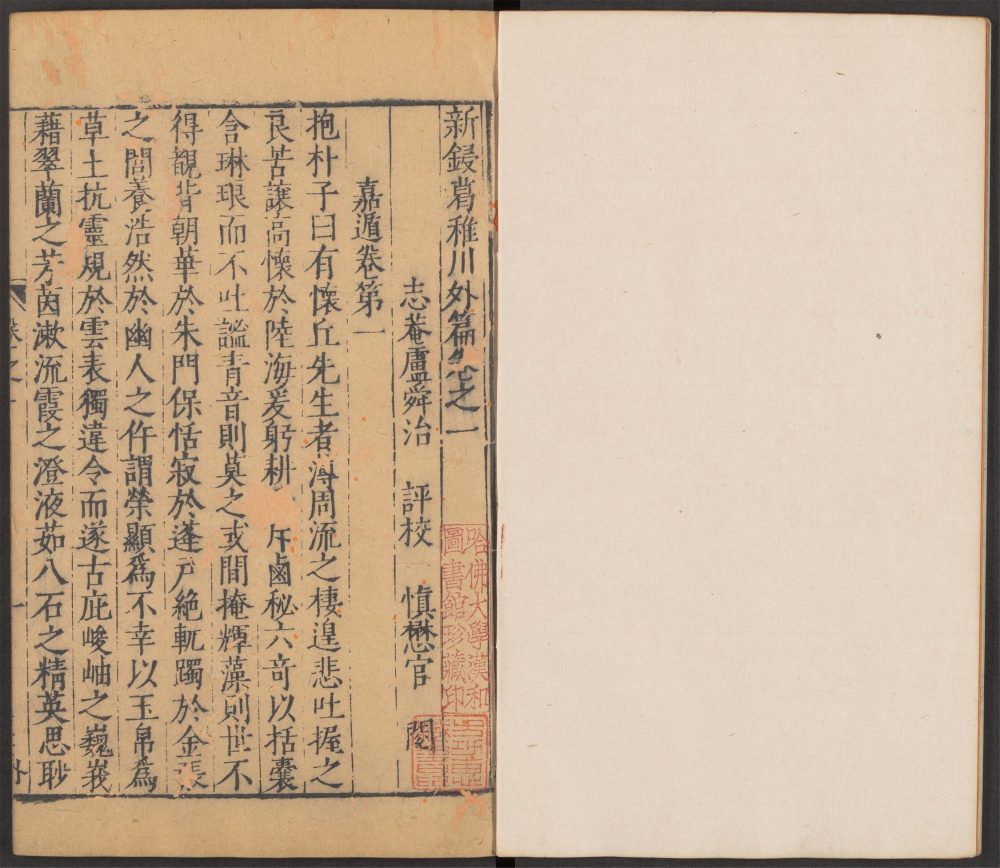 新鋟葛稚川外篇卷之一
志菴盧舜治 評校 慎懋官 閱
嘉遁卷第一
抱朴子曰有懷丘先生者薄周流之棲遑悲吐握之
良苦讓高懷於陸海爰躬耕 斥鹵秘六奇以括囊
含琳琅而不吐謐青音則莫之或間掩輝藻則世不
得覩背朝華於朱門保恬寂於蓬戶絶軌躅於金張
之閭養浩然於幽人之仵謂榮顯爲不幸以玉帛爲
草土抗靈規於雲表獨違令而遂古庇峻岫之巍峩
藉翠蘭之芳茵漱流霞之澄液茹八石之精英思眇
卷之一
一
外
哈佛大學漢和
圖書館珍藏印